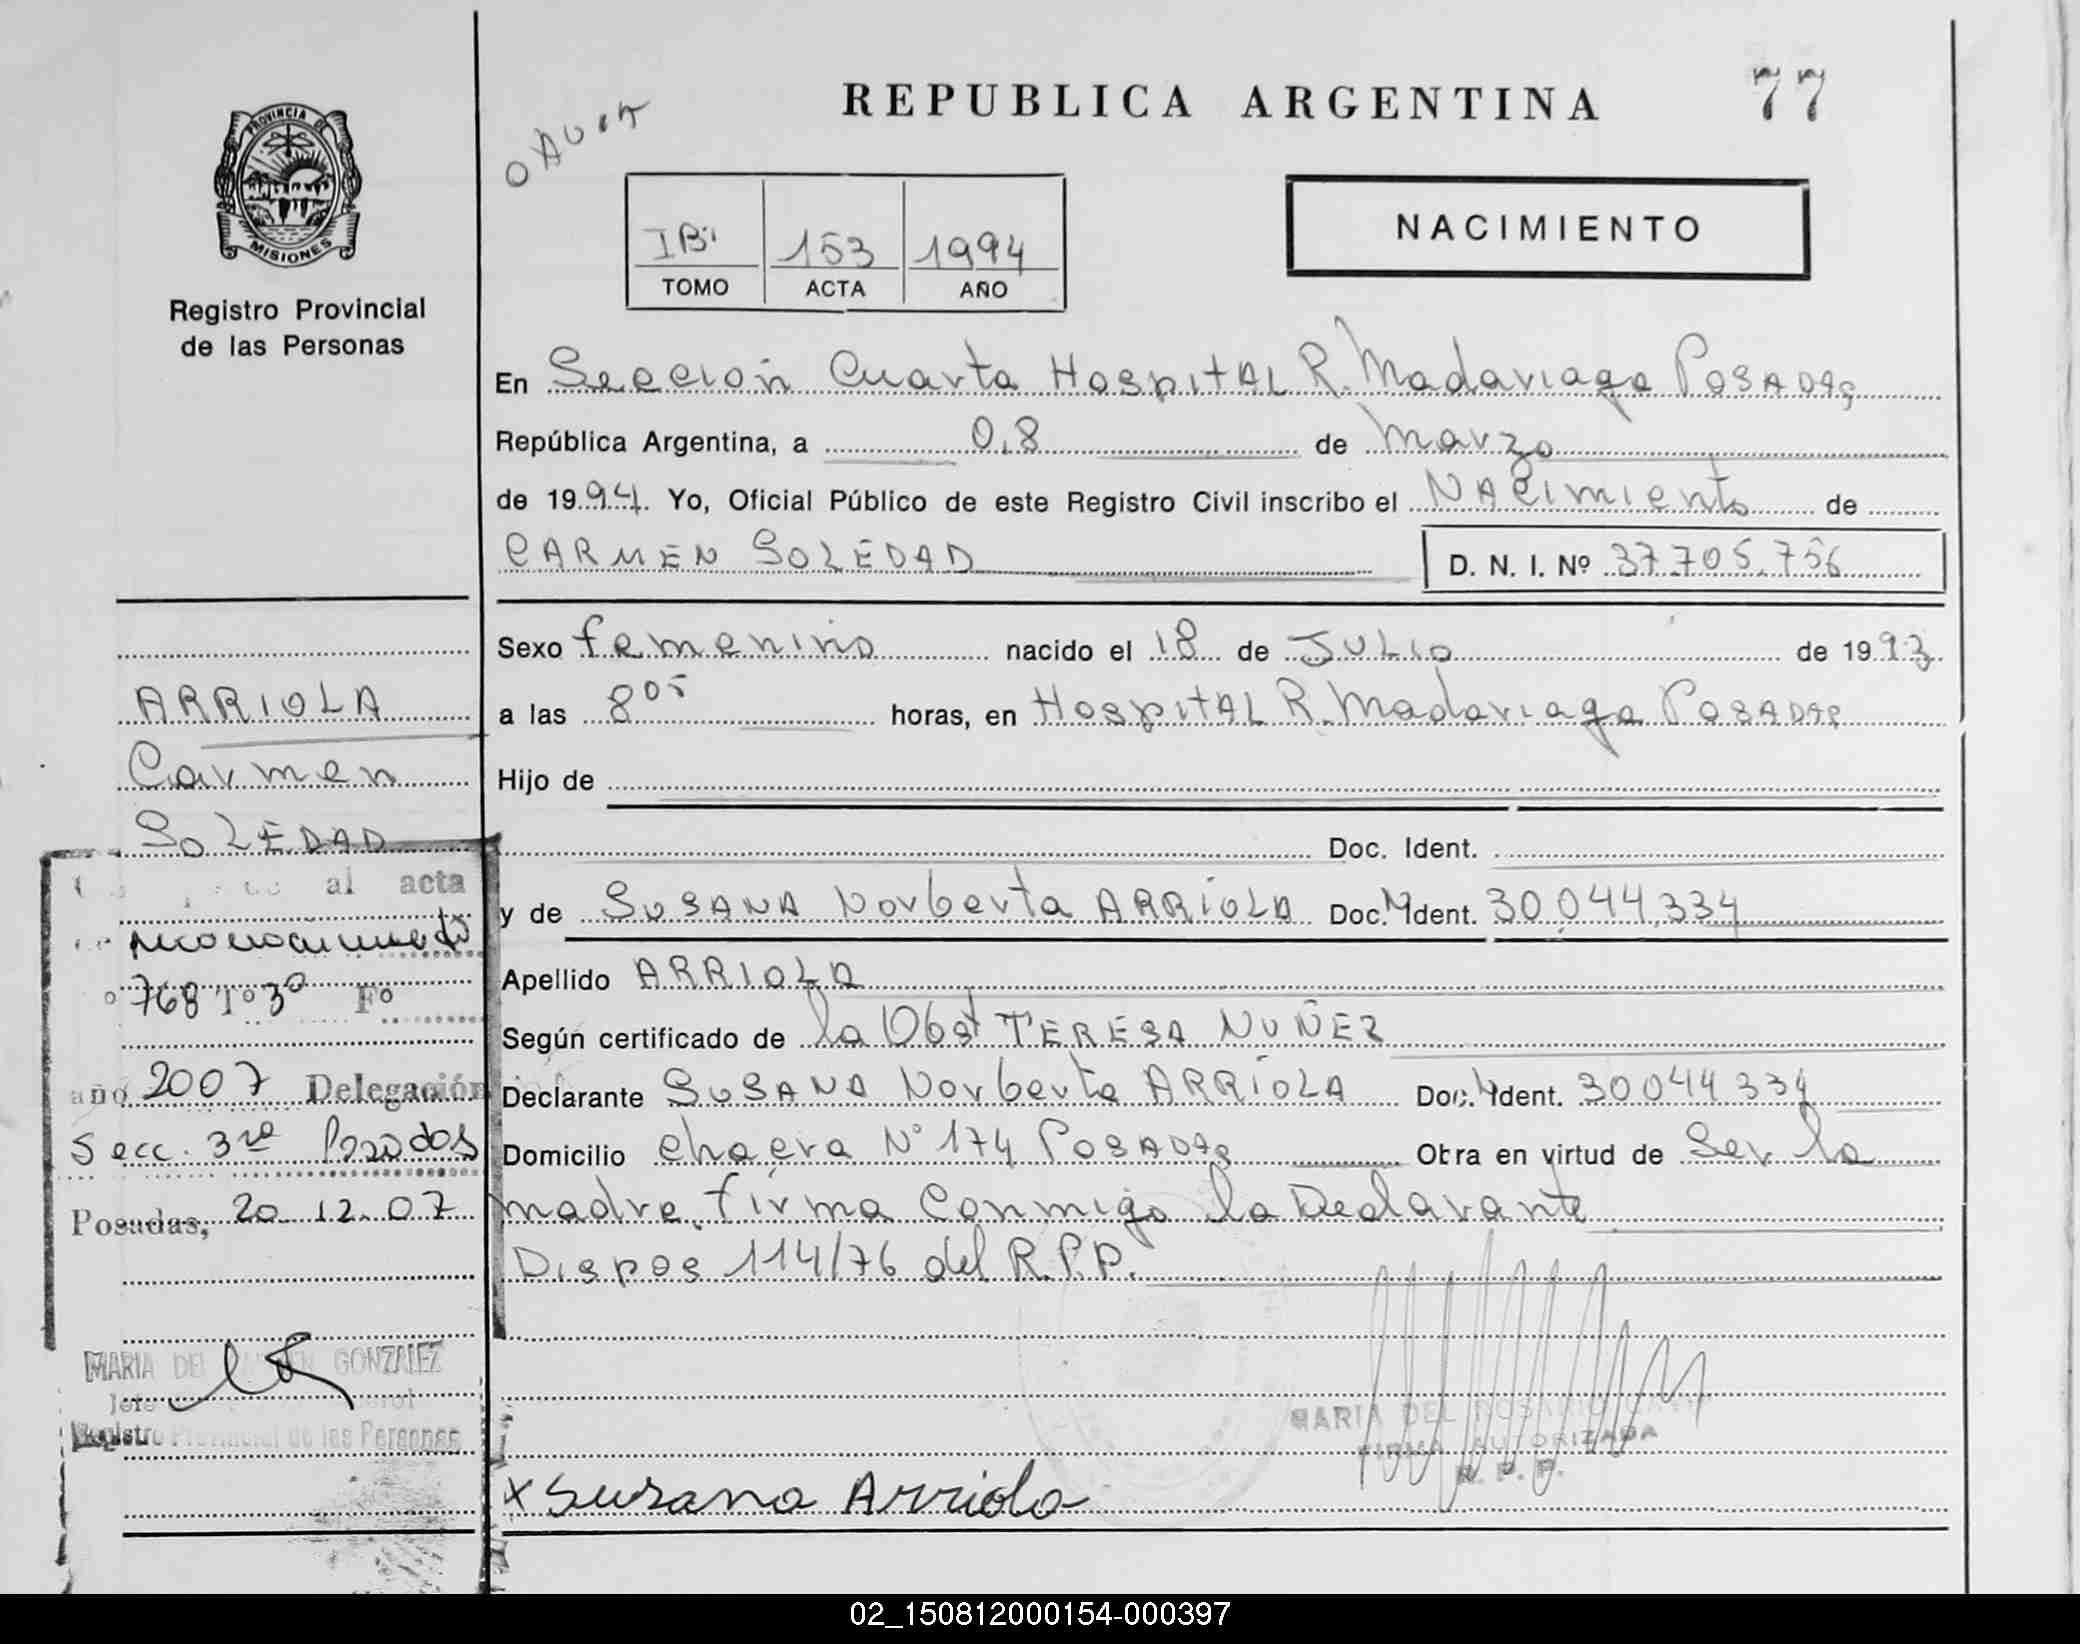 REPUBLICA ARGENTINA
77
PROVINCIA DE
MISIONES
Registro Provincial
de las Personas
IBi 153 1994
TOMO ACTA AÑO
NACIMIENTO
En Sección Cuarta Hospital R. Madariaga Posadas
República Argentina, a 0,8 de Marzo
de 1994. Yo, Oficial Público de este Registro Civil inscribo el Nacimiento de
CARMEN SOLEDAD D. N. I. Nº 37.705.756
Sexo femenino nacido el 18 de JULIO de 1993
a las 8 05 horas, en Hospital R. Madariaga Posadas
Hijo de
Doc. Ident.
y de SUSANA Norberta ARRIOLA Doc. Ident. 30.044.334
Apellido ARRIOLA
Según certificado de la Obst TERESA NUÑEZ
Declarante SUSANA Norberta ARRIOLA Doc. Ident. 30044334
Domicilio chacra N° 174 Posadas Obra en virtud de Ser la
madre. firma conmigo la Declarante
Dispos 114/76 del R.P.P.
MARIA DEL ROSARIO
FIRMA AUTORIZADA
R. P. P.
x Susana Arriola
ARRIOLA
Carmen
SOLEDAD
al acta
reconocimiento
768 Tº 3º Fº
año 2007 Delegación
Secc. 3ra Posadas
Posadas, 20.12.07
MARIA DEL GONZALEZ
Jefe
Registro Provincial de las Personas
02_150812000154-000397